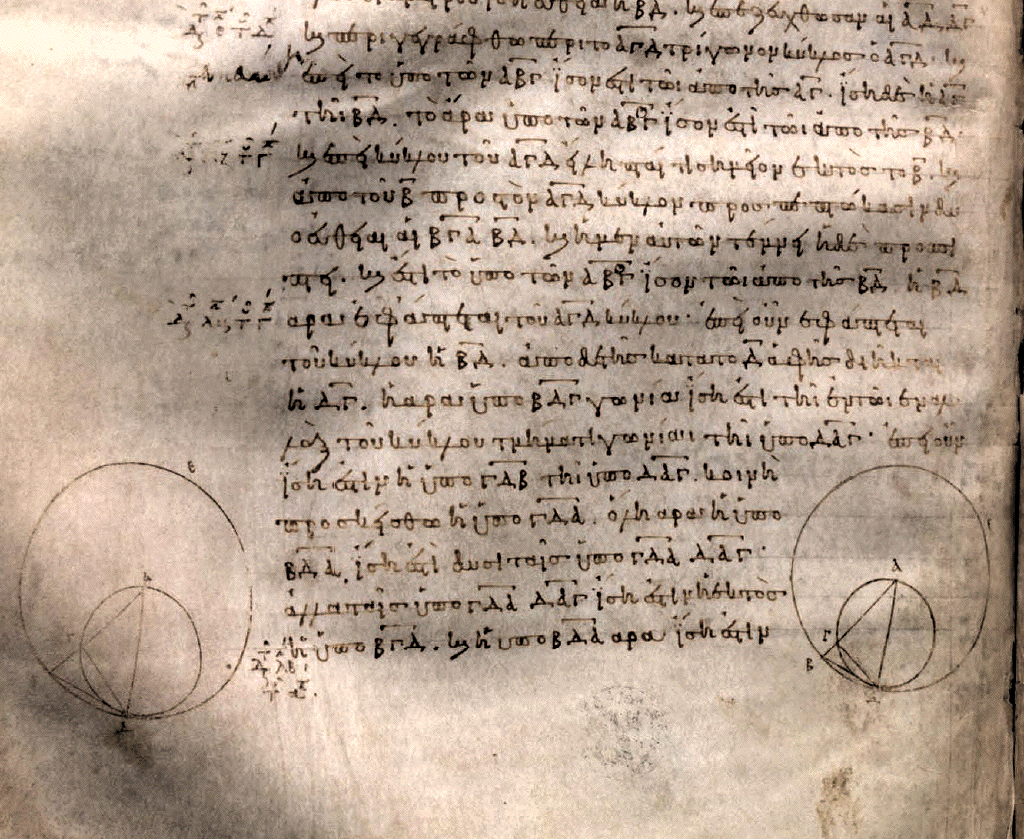 ἡ ΒΔ. καὶ ἐπεζεύχθωσαν αἱ ΑΔ ΔΓ
καὶ περιγεγράφθω περὶ τὸ ΑΓΔ τρίγωνον κύκλος ὁ ΑΓΔ. καὶ
ἐπεὶ τὸ ὑπὸ τῶν ΑΒΓ ἴσον ἐστὶ τῶι ἀπὸ τῆς ΑΓ. ἴση δὲ ἡ ΑΓ
τῆι ΒΔ. τὸ ἄρα ὑπὸ τῶν ΑΒΓ ἴσον ἐστὶ τῶι ἀπὸ τῆς ΒΔ.
καὶ ἐπεὶ κύκλου τοῦ ΑΓΔ εἴληπταί τι σημεῖον ἐκτὸς τὸ Β. καὶ
ἀπὸ τοῦ Β πρὸς τὸν ΑΓΔ κύκλον προσπεπτώκασιν δύο
εὐθεῖαι αἱ ΒΓΑ ΒΔ. καὶ ἡ μὲν αὐτῶν τέμνει ἡ δὲ προσπί
πτει. καὶ ἐστὶ τὸ ὑπὸ τῶν ΑΒΓ ἴσον τῶι ἀπὸ τῆς ΒΔ. ἡ ΒΔ
ἄρα ἐφάπτεται τοῦ ΑΓΔ κύκλου· ἐπεὶ οὖν ἐφάπτεται
τοῦ κύκλου ἡ ΒΔ. ἀπὸ δὲ τῆς κατὰ τὸ Δ ἁφῆς διῆκται
ἡ ΔΓ. ἡ ἄρα ὑπὸ ΒΔΓ γωνία ἴση ἐστὶ τῆι ἐν τῶι ἐναλ
λὰξ τοῦ κύκλου τμήματι γωνίαι τῆι ὑπὸ ΔΑΓ· ἐπεὶ οὖν
ἴση ἐστὶν ἡ ὑπὸ ΓΔΒ τῆι ὑπὸ ΔΑΓ. κοινὴ
προσκείσθω ἡ ὑπὸ ΓΔΑ. ὅλη ἄρα ἡ ὑπὸ
ΒΔΑ ἴση ἐστὶ δυσὶ ταῖς ὑπὸ ΓΔΑ ΔΑΓ·
ἀλλὰ ταῖς ὑπὸ ΓΔΑ ΔΑΓ ἴση ἐστὶν ἡ ἐκτὸς
ἡ ὑπὸ ΒΓΔ. καὶ ἡ ὑπὸ ΒΔΑ ἄρα ἴση ἐστὶν
Α
Γ
Β
Δ